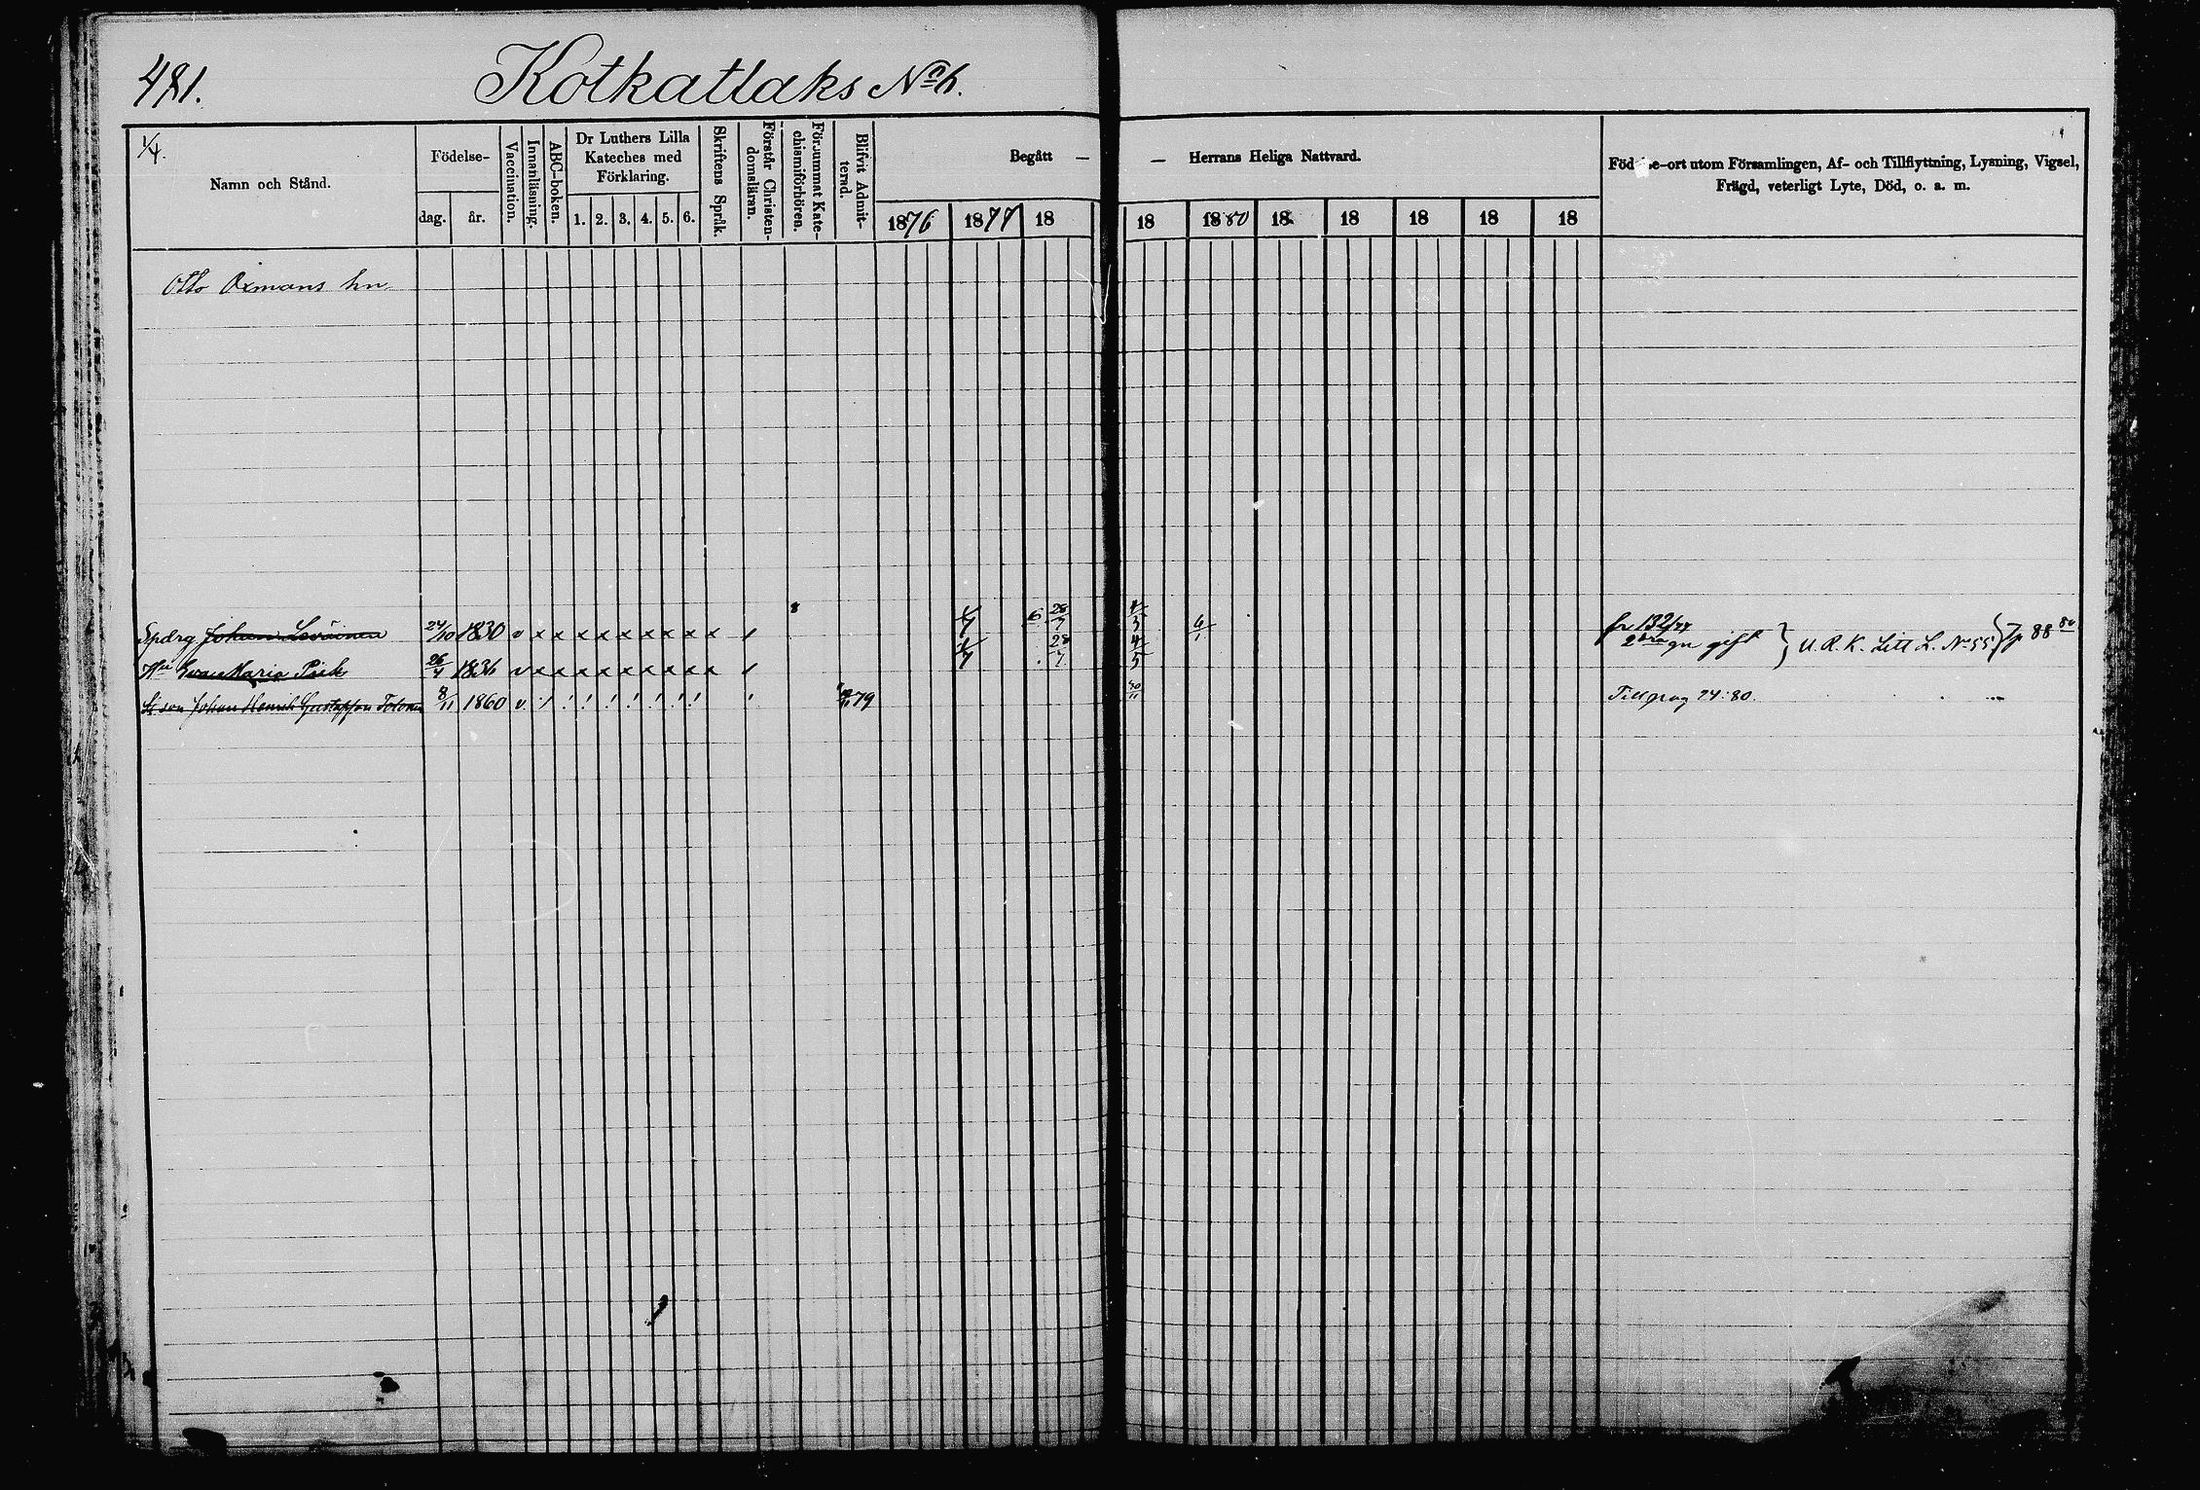 481.
Kotkatlaks No 6.
1/4.
Namn och Stånd.
Födelse-
dag. år.
Vaccination.
Innanläsning.
ABC-boken.
Dr Luthers Lilla
Kateches med
Förklaring.
1. 2. 3. 4. 5. 6.
Skriftens Språk.
Förstår Christen-
domsläran.
Försummat Kate-
chismiförhören.
Blifvit Admit-
terad.
Begått —
— Herrans Heliga Nattvard.
1876 1877 18
18 1880 18 18 18 18 18
Födelse-ort utom Församlingen, Af- och Tillflyttning, Lysning, Vigsel,
Frägd, veterligt Lyte, Död, o. a. m.
Otto Oxmans hn.
Johan 24/10 1830 v x x x x x x x x x 6 28/7 4/5 6/1 fr 132/77
2dra gn gift } U. R. K. Litt L. No 55 } 88 80
Hu Eva Maria 26/4 1836 v x x x x x x x x x 28/7 4/5
son Johan Henrik Gustafson Tolonen 8/11 1860 v 79 30/11 74:80.